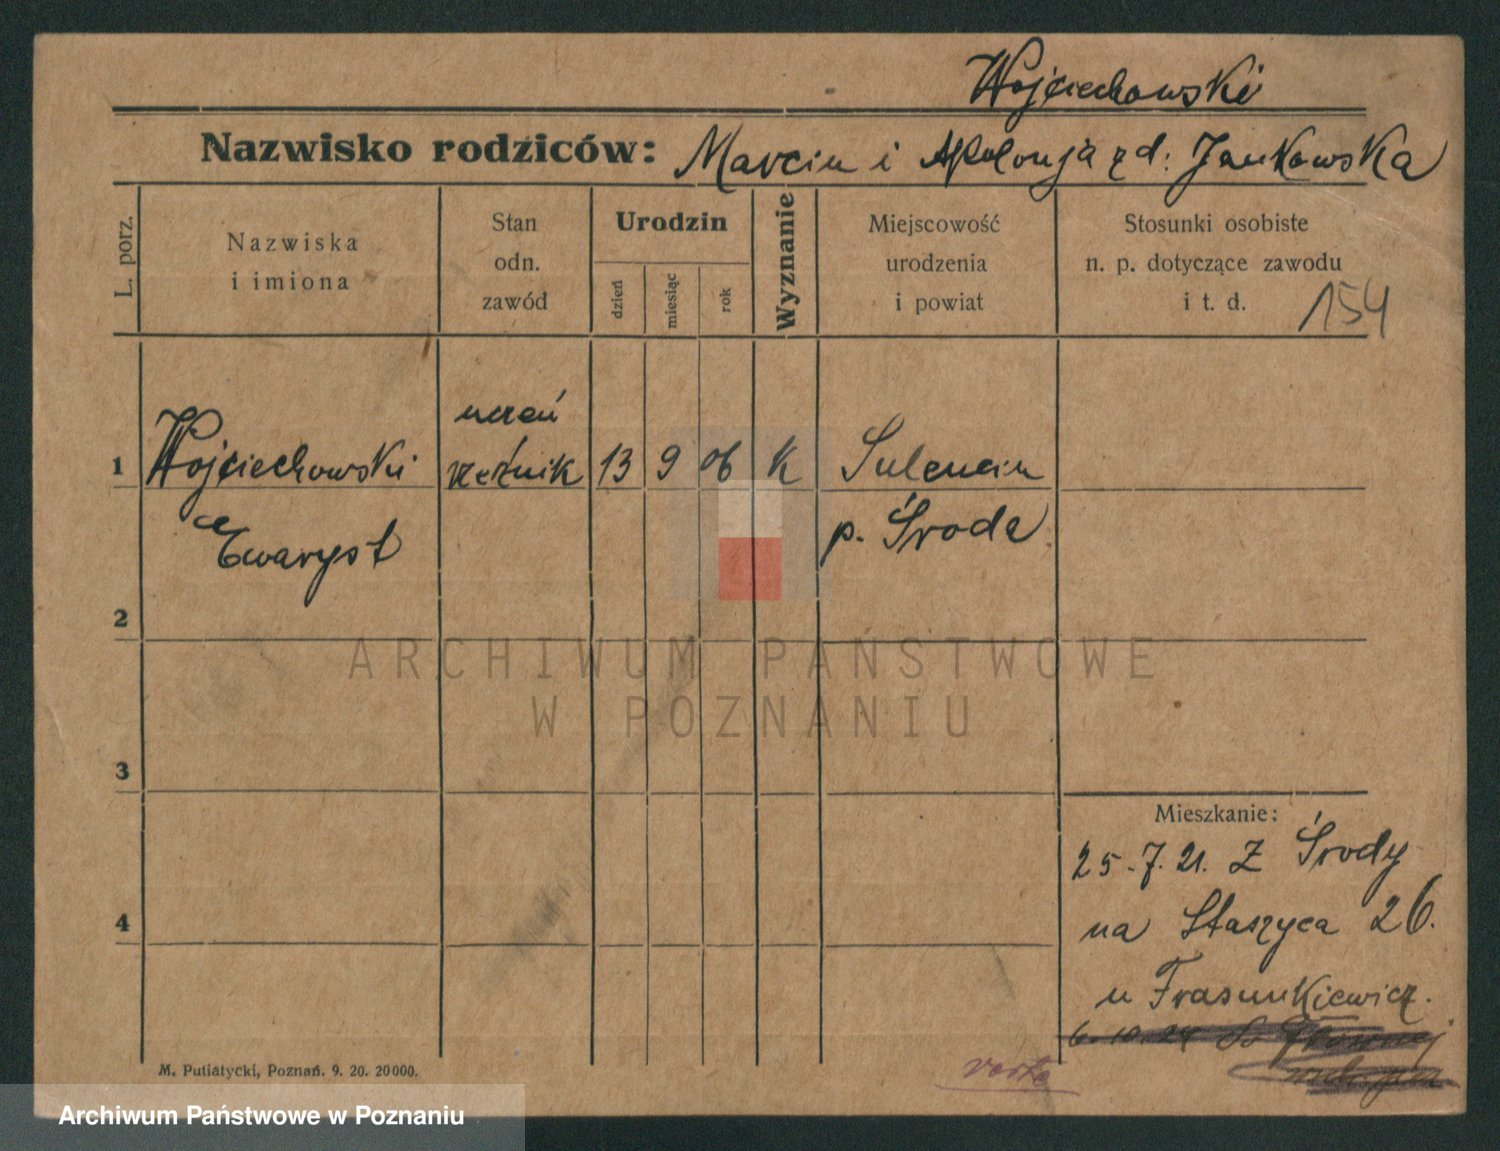 Wojciechowski
Nazwisko rodziców: Marcin i Apolonja z d: Jankowska
L. porz.
Nazwiska
i imiona
Stan
odn.
zawód
Urodzin
dzień
miesiąc
rok
Wyznanie
Miejscowość
urodzenia
i powiat
Stosunki osobiste
n. p. dotyczące zawodu
i t. d.
154
1
Wojciechowski
Ewaryst
uczeń
rzeźnik
13
9
06
K
Sulencin
p. Środa
2
3
4
Mieszkanie:
25.7.21. Z Środy
na Staszyca 26.
u Frasunkiewicz.
6.10.24
verte
M. Putiatycki, Poznań. 9. 20. 20000.
ARCHIWUM PAŃSTWOWE
W POZNANIU
Archiwum Państwowe w Poznaniu